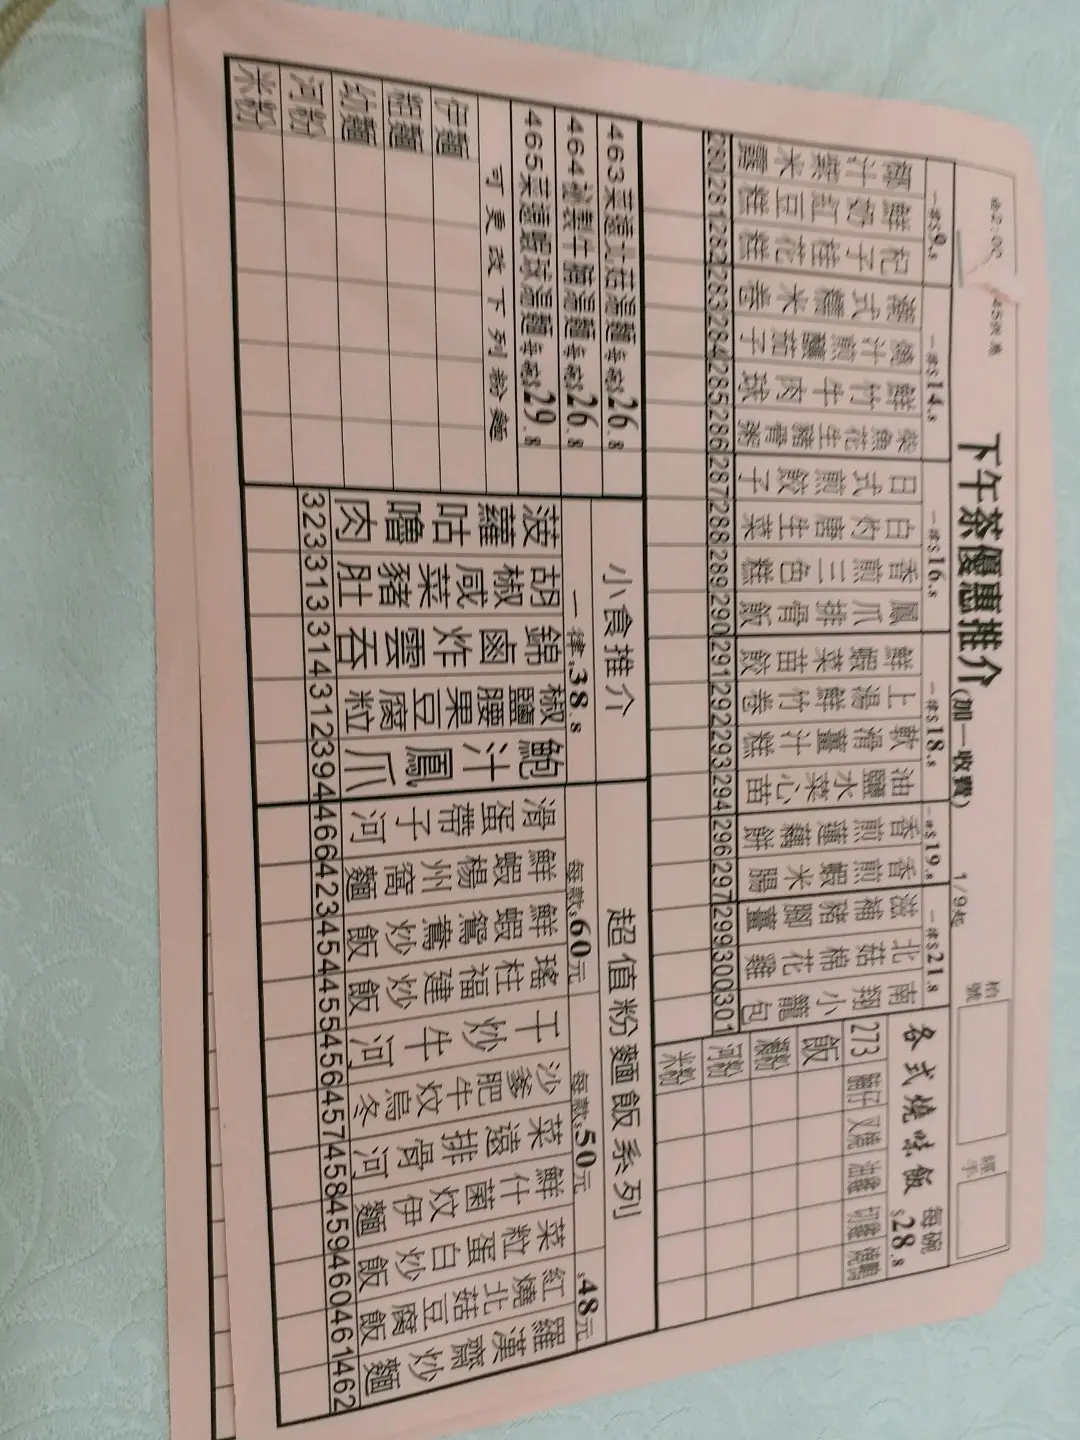 下午茶優惠推介(加一收費) 1/9起
枱號
經手
一律$9.8
一律$14.8
一律$16.8
一律$18.8
一律$19.8
一律$21.8
椰汁紫米露
鮮奶紅豆糕
杞子桂花糕
潮式糯米卷
鮮竹牛肉球
柴魚花生豬骨粥
日式煎餃子
白灼唐生菜
香煎三色糕
鳳爪排骨飯
鮮蝦菜苗餃
上湯鮮竹卷
軟滑薑汁糕
油鹽水菜心苗
香煎蓮藕餅
香煎蝦米腸
滋補豬腳薑
北菇棉花雞
南翔小籠包
280 281 282 283 284 285 286 287 288 289 290 291 292 293 294 296 297 299 300 301
各式燒味飯 每碗$28.8
273
飯
瀨粉
河粉
米粉
463菜遠大菇湯麵每碗$26.8
464秘製牛腩湯麵每碗$26.8
465菜遠鯪球湯麵每碗$29.8
可更改下列粉麵
伊麵
粗麵
幼麵
河粉
米粉
小食推介
一律$38.8
菠蘿咕嚕肉
胡椒咸菜豬肚
錦鹵炸雲吞
椒鹽腰果豆腐粒
鮑汁鳳爪
323 313 314 312 394
超值粉麵飯系列
每款$60元
每款$50元
$48元
滑蛋帶子河
鮮蝦楊州窩麵
鮮蝦鴛鴦炒飯
瑤柱福建炒飯
干炒牛河
沙爹肥牛炆烏冬
菜遠排骨河
鮮什菌炆伊麵
菜粒蛋白炒飯
紅燒北菇豆腐飯
羅漢齋炒麵
466 423 454 455 456 457 458 459 460 461 462